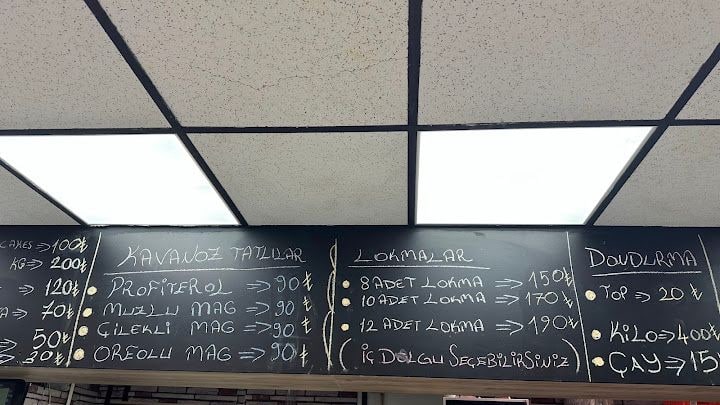 CAKES ⇒ 100₺
KG ⇒ 200₺
⇒ 120₺
A ⇒ 70₺
50₺
30₺
KAVANOZ TATLILAR
PROFİTEROL ⇒ 90 ₺
MUZLU MAG ⇒ 90 ₺
ÇİLEKLİ MAG ⇒ 90 ₺
OREOLU MAG ⇒ 90 ₺
LOKMALAR
8 ADET LOKMA ⇒ 150₺
10 ADET LOKMA ⇒ 170₺
12 ADET LOKMA ⇒ 190₺
( İÇ DOLGU SEÇEBİLİRSİNİZ )
DONDURMA
TOP ⇒ 20 ₺
KİLO ⇒ 400₺
ÇAY ⇒ 15